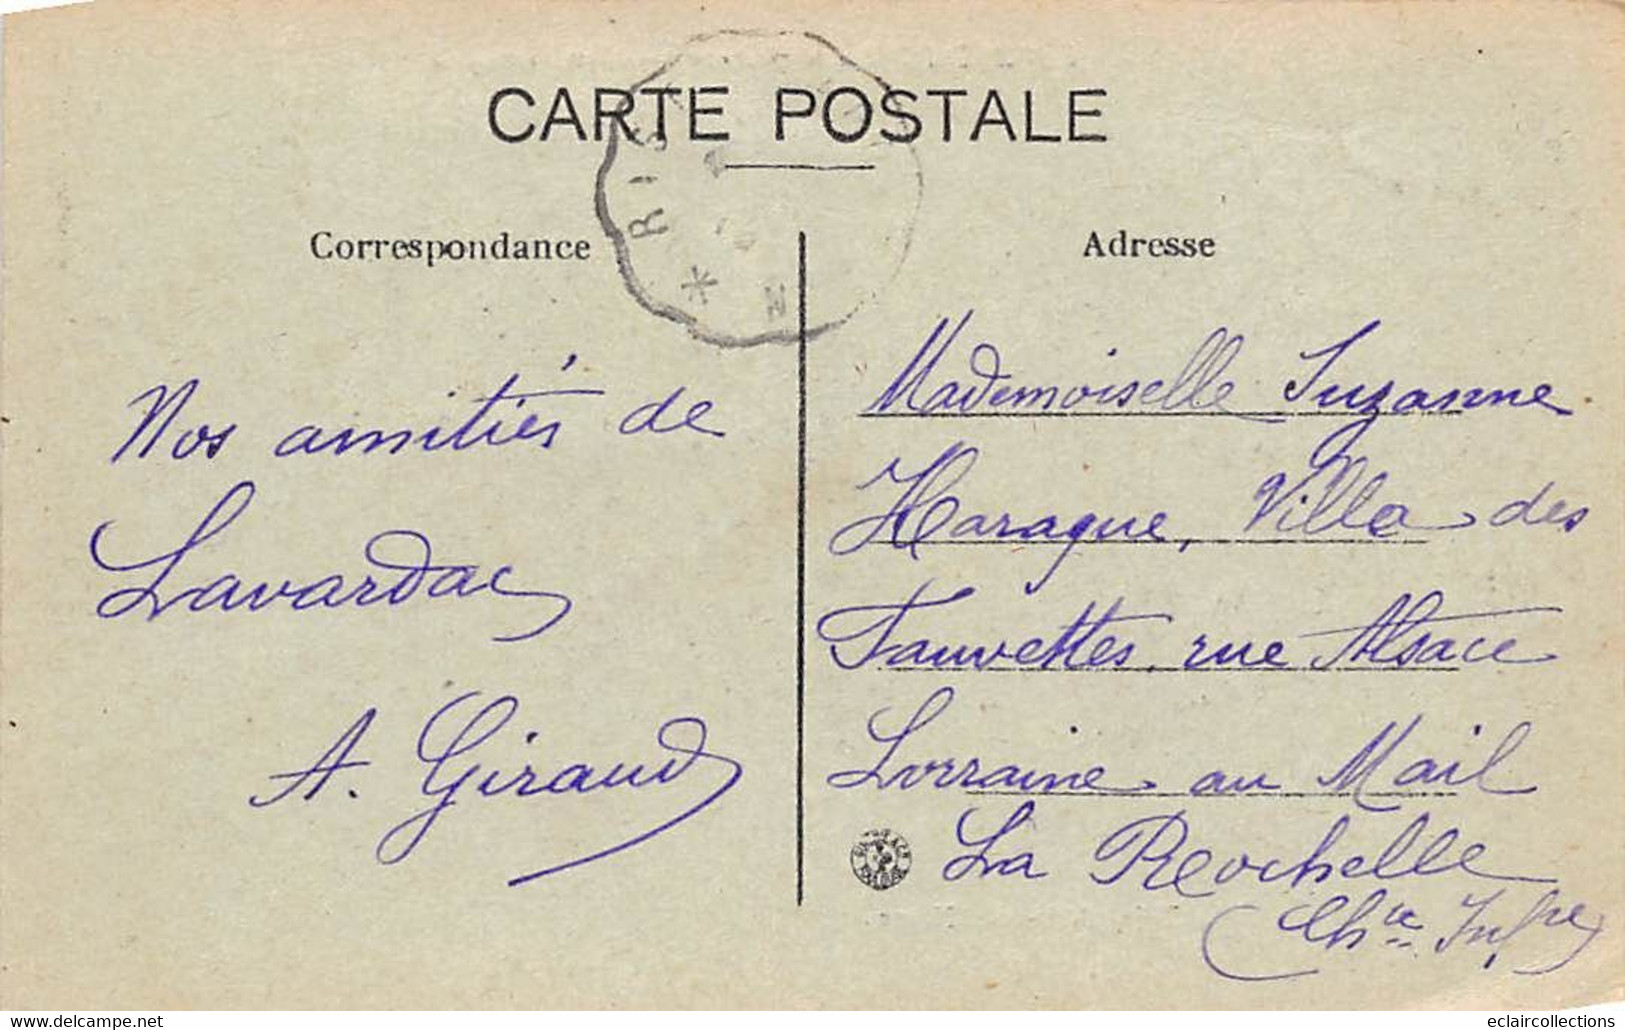 CARTE POSTALE
Correspondance
Nos amitiés de
Lavardac
A. Giraud
Adresse
Mademoiselle Suzanne
Haraque, Villa des
Fauvettes rue Alsace
Lorraine au Mail
La Rochelle
(Chte Infre)
www.delcampe.net
eclaircollections